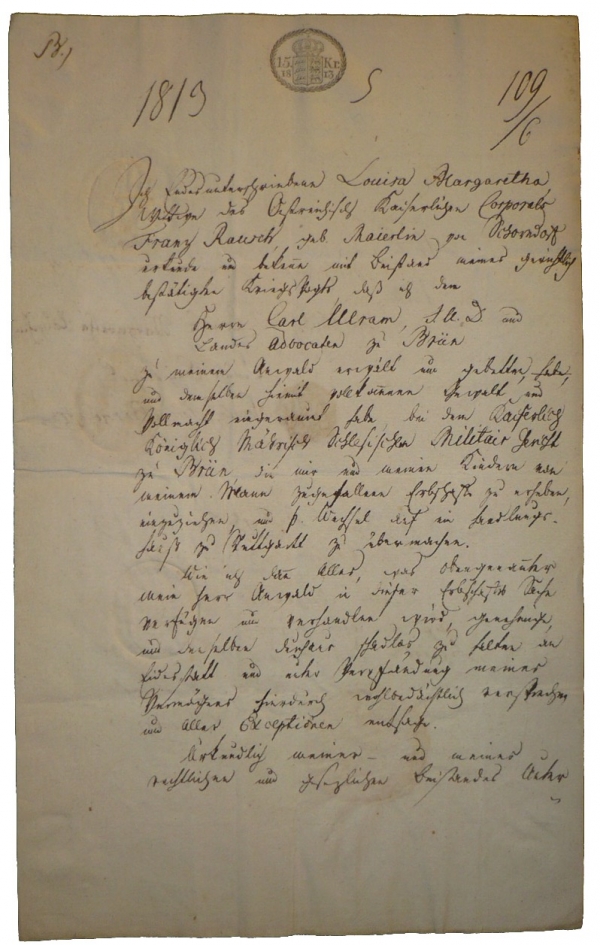 B.)
15 Kr.
18 13
1813 5 109/6
Ich Endesunterschriebene Louisa Margaretha,
Wittwe des Oestreichisch Kaiserlichen Corporals
Franz Rausch, geb. Maierlin von Schorndorf
urkunde und bekenne mit Beistand meines gerichtlich
bestätigten Kriegsvogts, daß ich den
Herrn Carl Ulram, J.U.D. und
Landes Advocaten zu Brün
zu meinem Anwald erwält und gebetten habe,
und demselben hiemit vollkommen Gewalt und
Vollmacht eingeraumt habe, bei dem Kaiserlich
Königlich Mährisch Schlesischen Militair Gericht
zu Brün die mir und meinen Kindern von
meinem Mann zugefallene Erbschaft zu erheben,
einzuziehen, und p. Wechsel auf ein Handlungs-
hauß zu Stuttgardt zu übermachen.
Wie ich dann Alles, was obengenannter
mein Herr Anwald in dieser Erbschafts Sache
verfügen und verhandlen wird, genehmige,
und denselben durchaus schadlos zu halten an
Eidesstatt und unter Verpfändung meines
Vermögens hierdurch rechtbedächtlich verspreche
und Aller Exceptionen entsage.
Urkundlich meiner- und meines
rechtlichen und gesezlichen Beistandes Unter